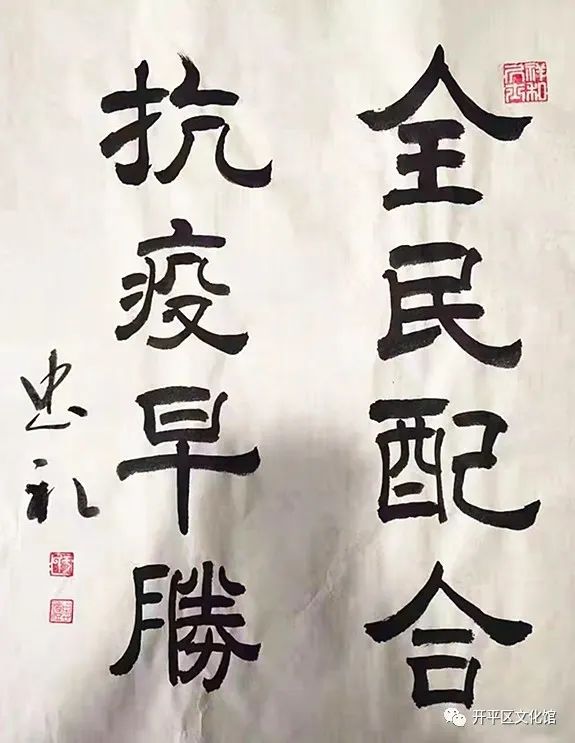 全民配合
抗疫早勝
忠礼
祥和
开平区文化馆